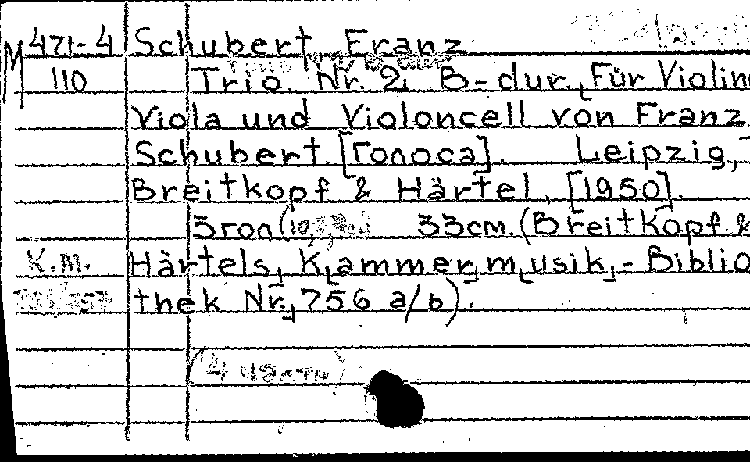 М 471-4 Schubert, Franz
110 Trio Nr. 2, B-dur. Für Violin
Viola und Violoncell von Franz
Schubert [Голоса]. Leipzig,
Breitkopf & Härtel, [1950].
33cm. (Breitkopf &
К.М. Härtels Kammermusik-Biblio
thek Nr. 756 a/b).
(4